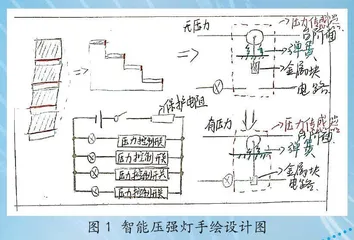 无压力
压力传感器
台阶面
弹簧
金属块
电路
保护电阻
压力控制开关
压力控制开关
压力控制开关
压力控制开关
有压力
压力传感器
台阶面
弹簧
金属块
电路
图 1 智能压强灯手绘设计图